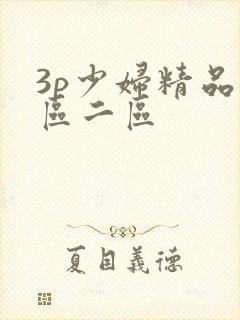 3p少婦精品
區二區
夏目義德